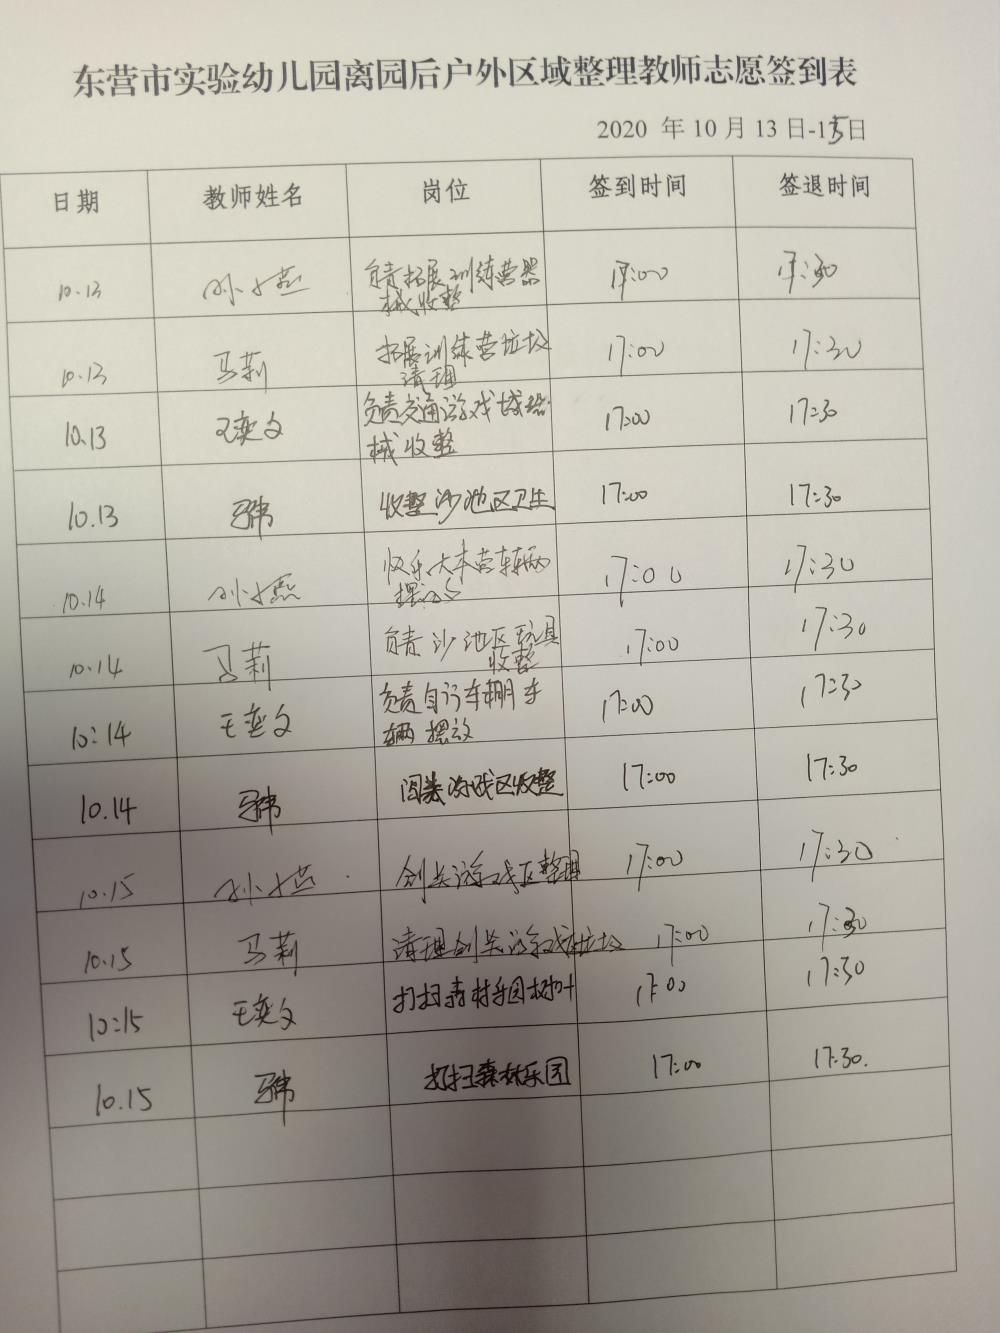 东营市实验幼儿园离园后户外区域整理教师志愿签到表
2020 年 10 月 13 日-15日
日期 教师姓名 岗位 签到时间 签退时间
10.13 孙小燕 负责拓展训练营器 17:00 17:30
械收整
10.13 马莉 拓展训练营垃圾 17:00 17:30
清理
10.13 王奕文 负责交通游戏城器 17:00 17:30
械收整
10.13 收整沙池区卫生 17:00 17:30
10.14 孙小燕 快乐大本营车辆 17:00 17:30
摆放
10.14 马莉 负责沙池区玩具 17:00 17:30
收整
10:14 王奕文 负责自行车棚车 17:00 17:30
辆摆放
10.14 游戏区收整 17:00 17:30
10.15 孙小燕 游戏区整理 17:00 17:30
10.15 马莉 清理 垃圾 17:00 17:30
10:15 王奕文 打扫森林乐园树叶 17:00 17:30
10.15 打扫森林乐园 17:00 17:30.